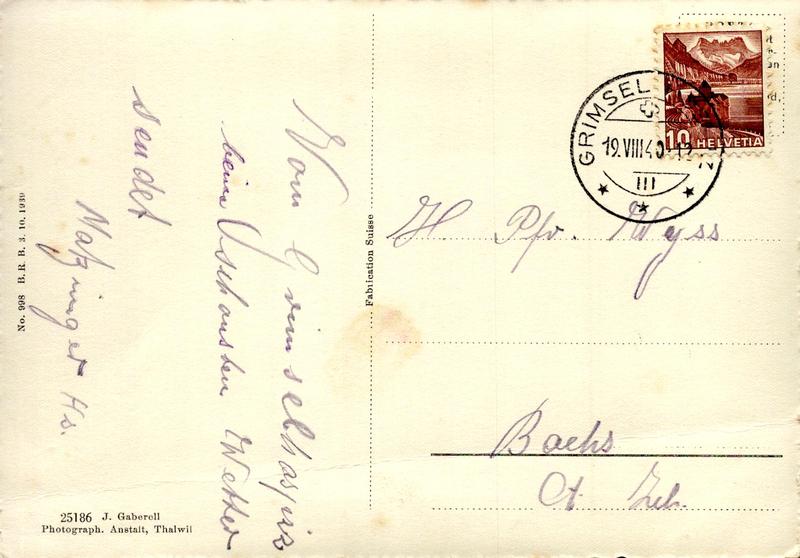 Vom Grimselhospiz
beim schönsten Wetter
sendet
Matzinger Hs.
No. 998 B. R. B. 3. 10. 1939
25186 J. Gaberell
Photograph. Anstalt, Thalwil
Fabrication Suisse
GRIMSEL
19. VIII 40. 12
III
10 HELVETIA
H Pfr. Wyss
Bachs
Ct Zch.